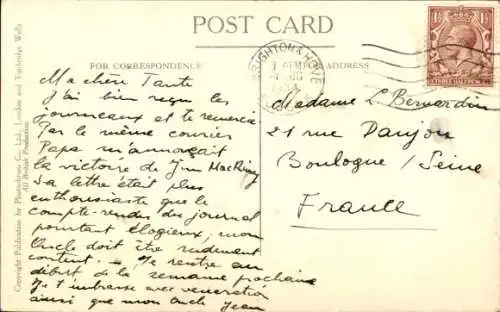 POST CARD
FOR CORRESPONDENCE
FOR ADDRESS
BRIGHTON & HOVE
1924
1½
THREE HALFPENCE
Copyright Publication by Photochrom Co., Ltd., London and Tunbridge Wells
All British Production
Ma chère Tante
J'ai bien reçu les
journeaux et te remercie
Par le même courier
Papa m'annonçait
la victoire de Jim MacKiney
Sa lettre était plus
enthousiaste que le
compte-rendu du journal
pourtant élogieux, mon
Oncle doit être rudement
content. - Je rentre au
début de la semaine prochaine
Je t'embrasse avec vénération
ainsi que mon Oncle Jean
Madame L. Bernardin
21 rue Danjou
Boulogne / Seine
France